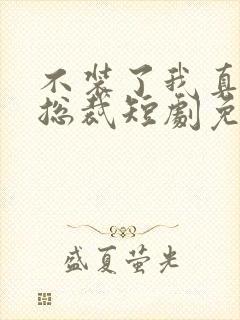 不装了我真
总裁短劇免
盛夏萤光